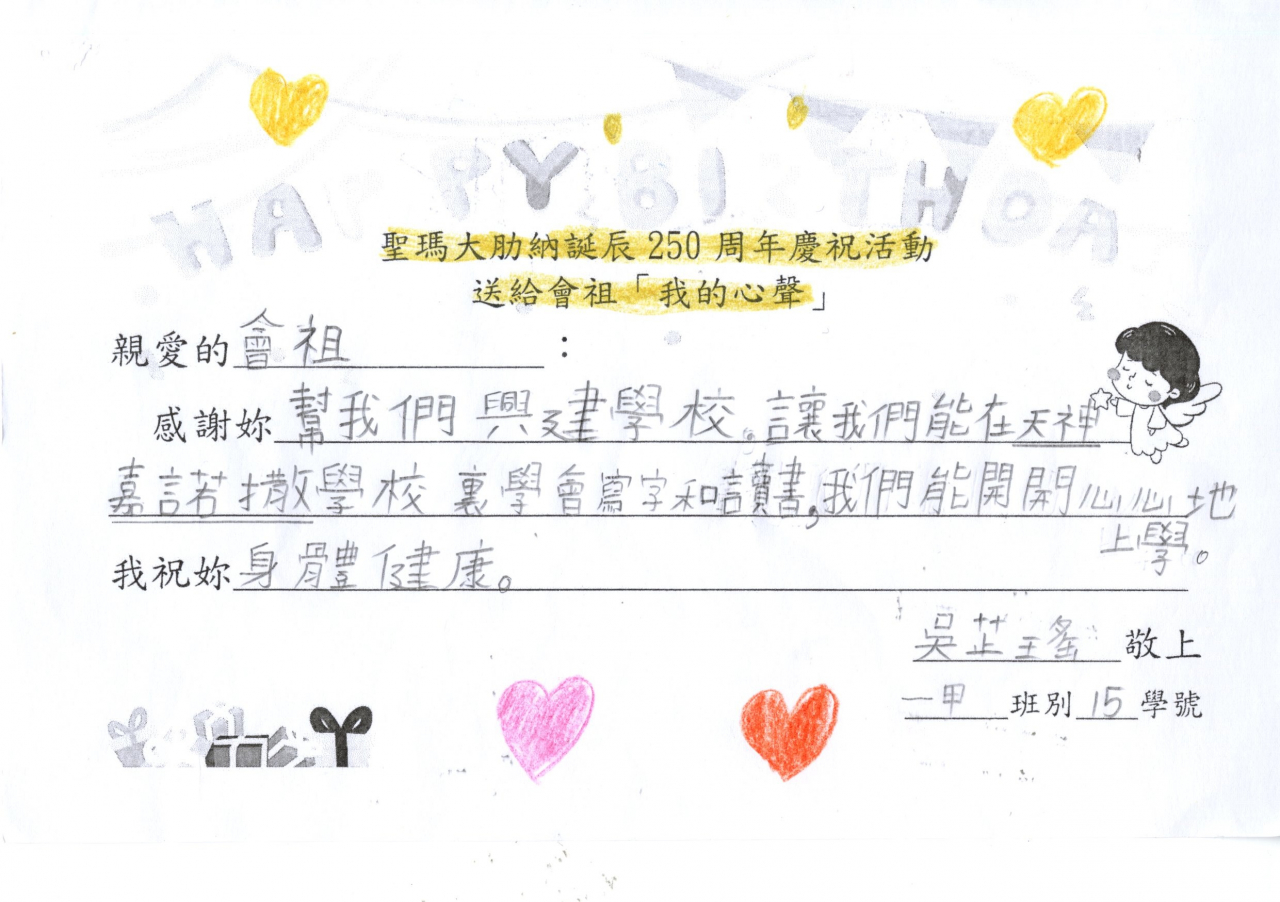 HAPPY BIRTHDA
聖瑪大肋納誕辰 250 周年慶祝活動
送給會祖「我的心聲」
親愛的會祖：
感謝妳幫我們興建學校。讓我們能在天神
嘉諾撒學校裏學會寫字和讀書,我們能開開心心地
上學。
我祝妳身體健康。
吳芷瑤 敬上
一甲 班別 15 學號